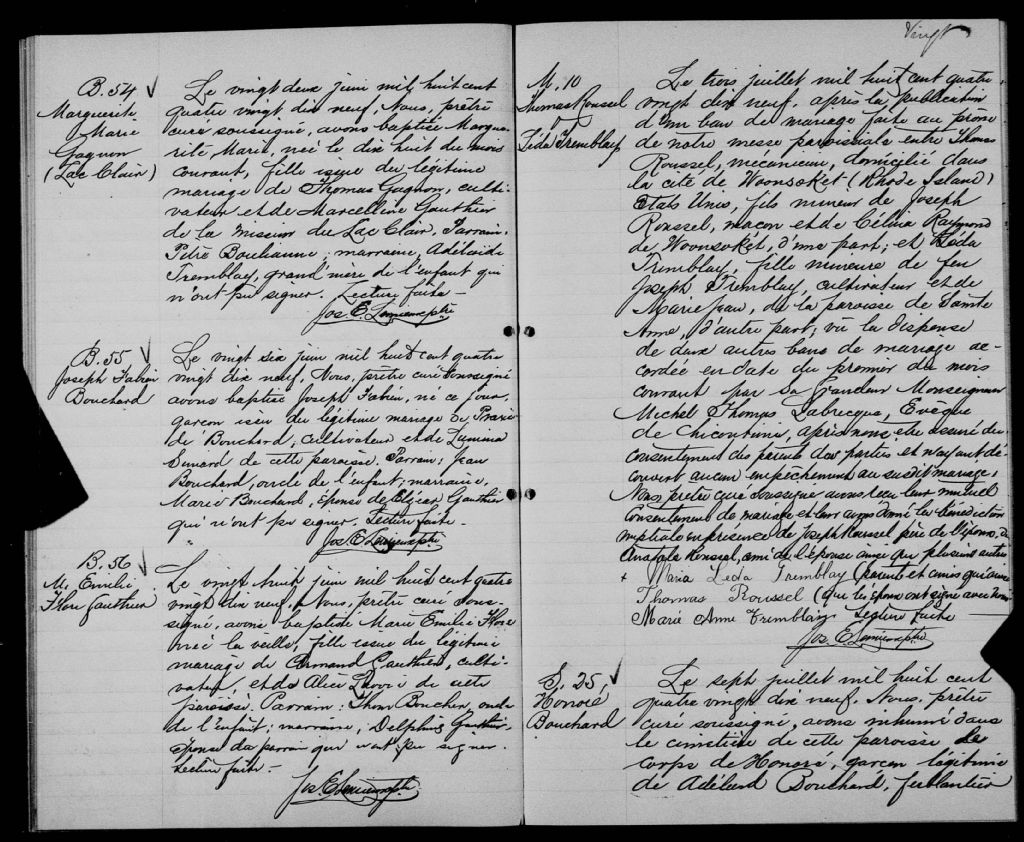 B. 54
Marguerite
Marie
Gagnon
(Lac Clair)
Le vingt deux juin mil huit cent
quatre vingt dix neuf, Nous, prêtre
curé soussigné, avons baptisé Margue-
rite Marie, née le dix huit du mois
courant, fille issue du légitime
mariage de Thomas Gagnon, culti-
vateur et de Marcelline Gauthier
de la mission du Lac Clair. Parrain,
Pitre Boulianne; marraine, Adélaide
Tremblay, grand'mère de l'enfant qui
n'ont pu signer. Lecture faite -
Jos. E. Lemieux ptre
B. 55
Joseph Fabien
Bouchard
Le vingt six juin mil huit cent quatre
vingt dix neuf, Nous, prêtre curé soussigné
avons baptisé Joseph Fabien, né ce jour,
garçon issu du légitime mariage de
de Bouchard, cultivateur et de
Simard de cette paroisse. Parrain; Jean
Bouchard, oncle de l'enfant; marraine,
Marie Bouchard, épouse de Elzéar Gauthier
qui n'ont pu signer. Lecture faite -
Jos E Lemieux ptre
B. 56
M. Emilie
Flore Gauthier
Le vingt huit juin mil huit cent quatre
vingt dix neuf, Nous, prêtre curé sous-
signé, avons baptisé Marie Emilie Flore
née la veille, fille issue du légitime
mariage de Armand Gauthier, culti-
vateur, et de Alice de cette
paroisse. Parrain: Thom Boucher, oncle
de l'enfant; marraine, Delphine Gauthier
épouse du parrain qui n'ont pu signer.
Lecture faite. -
Jos E Lemieux ptre
Vingt
M. 10
Thomas Roussel
&
Léda Tremblay
Le trois juillet mil huit cent quatre
vingt dix neuf, après la publication
d'un ban de mariage faite au prône
de notre messe paroissiale entre Thomas
Roussel, mécanicien, domicilié dans
la cité de Woonsoket (Rhode Island)
Etats Unis, fils mineur de Joseph
Roussel, maçon et de Célina Raymond
de Woonsokét, d'une part; et Léda
Tremblay, fille mineure de feu
Joseph Tremblay, cultivateur et de
Marie Jean, de la paroisse de Sainte
Anne, d'autre part; vu la dispense
de deux autres bans de mariage ac-
cordée en date du premier du mois
courant par sa Grandeur Monseigneur
Michel Thomas Labrecque, Evêque
de Chicoutimi, après nous être assuré du
consentement des parents des parties et n'ayant dé-
couvert aucun empêchement au susdit mariage,
Nous prêtre curé soussigné avons reçu leur mutuel
consentement de mariage et leur avons donné la bénédiction
nuptiale en présence de Joseph Roussel père de l'époux, de
Anatole Roussel, ami de l'épouse ainsi que plusieurs autres
+ Maria Leda Tremblay (parents et amis qui ainsi
Thomas Roussel (que les époux ont signé avec nous
Marie Anne Tremblay Lecture faite
Jos. E Lemieux ptre
S. 25,
Honoré
Bouchard
Le sept juillet mil huit cent
quatre vingt dix neuf. Nous, prêtre
curé soussigné, avons inhumé dans
le cimetière de cette paroisse le
corps de Honoré, garçon légitime
de Adélard Bouchard, ferblantier